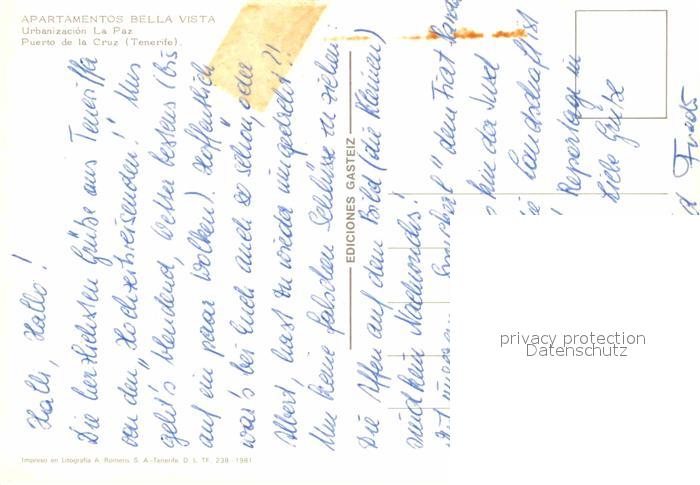 APARTAMENTOS BELLA VISTA
Urbanización La Paz
Puerto de la Cruz (Tenerife).
Hallo, Hallo!
Die herzlichsten Grüße aus Teneriffa
von den „Hochzeitsreisenden"! Uns
geht's blendend, Wetter bestens (bis
auf ein paar Wolken). Hoffentlich
war's bei Euch auch so schön, oder
Albert, hast Du wieder umgedreht?!
Um keine falschen Schlüsse zu ziehen
Die Affen auf dem Bild (die kleinen)
sind kein Nachwuchs!
" dem Frat
der Insel
Landschaft ist
Reportage in
Liebe Grüße
EDICIONES GASTEIZ
privacy protection
Datenschutz
Impreso en Litografía A. Romero, S. A.-Tenerife D. L. TF. 238 - 1981